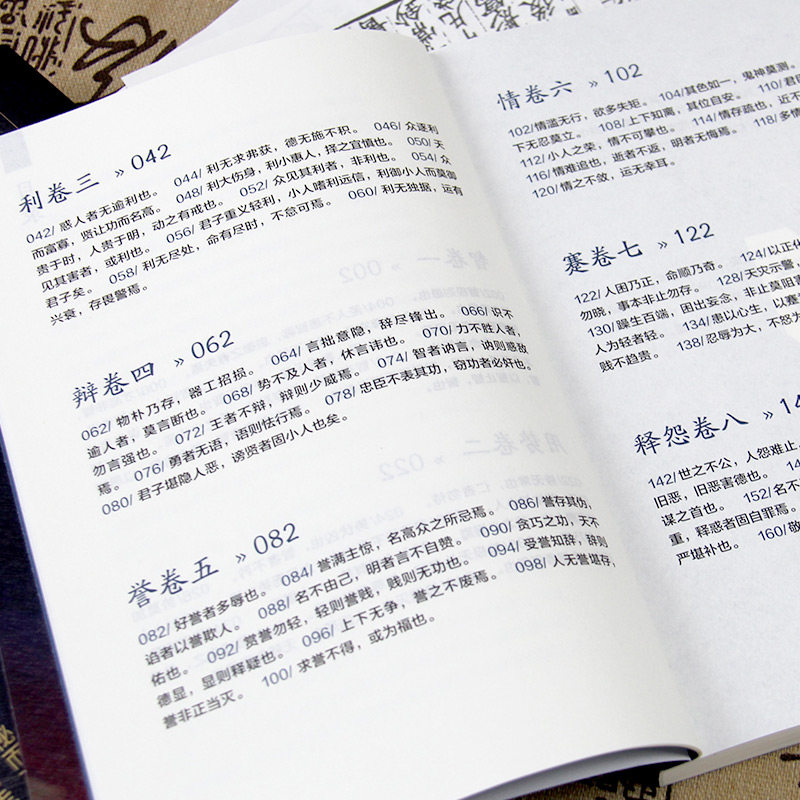 利卷三 » 042
042/ 惑人者无逾利也。 044/ 利无求弗获，德无施不积。 046/ 众逐利
而富寡，贤让功而名高。 048/ 利大伤身，利小惠人，择之宜慎也。 050/ 天
贵于时，人贵于明，动之有戒也。 052/ 众见其利者，非利也。 054/ 众
见其害者，或利也。 056/ 君子重义轻利，小人嗜利远信，利御小人而莫御
君子矣。 058/ 利无尽处，命有尽时，不怠可焉。 060/ 利无独据，运有
兴衰，存畏警焉。
辩卷四 » 062
062/ 物朴乃存，器工招损。 064/ 言拙意隐，辞尽锋出。 066/ 识不
逾人者，莫言断也。 068/ 势不及人者，休言讳也。 070/ 力不胜人者，
勿言强也。 072/ 王者不辩，辩则少威焉。 074/ 智者讷言，讷则惑敌
焉。 076/ 勇者无语，语则怯行焉。 078/ 忠臣不表其功，窃功者必奸也。
080/ 君子堪隐人恶，谤贤者固小人也矣。
誉卷五 » 082
082/ 好誉者多辱也。 084/ 誉满主惊，名高众之所忌焉。 086/ 誉存其伪，
谄者以誉欺人。 088/ 名不由己，明者言不自赞。 090/ 贪巧之功，天不
佑也。 092/ 赏誉勿轻，轻则誉贱，贱则无功也。 094/ 受誉知辞，辞则
德显，显则释疑也。 096/ 上下无争，誉之不废焉。 098/ 人无誉堪存，
誉非正当灭。 100/ 求誉不得，或为福也。
情卷六 » 102
102/ 情滥无行，欲多失矩。 104/ 其色如一，鬼神莫测。 110/ 君
下无忍莫立。 108/ 上下知离，其位自安。
112/ 小人之荣，情不可攀也。 114/ 情存疏也，近不
116/ 情难追也，逝者不返，明者无悔焉。 118/ 多情
120/ 情之不敛，运无幸耳。
蹇卷七 » 122
122/ 人困乃正，命顺乃奇。 124/ 以正化
勿晓，事本非止勿存。 128/ 天灾示警，
130/ 躁生百端，困出妄念，非止莫阻害
人为轻者轻。 134/ 患以心生，以蹇
贱不趋贵。 138/ 忍辱为大，不怒为
释怨卷八 » 14
142/ 世之不公，人怨难止
旧恶，旧恶害德也。
谋之首也。 152/ 名不
重，释惑者固自罪焉。
严堪补也。 160/ 敬